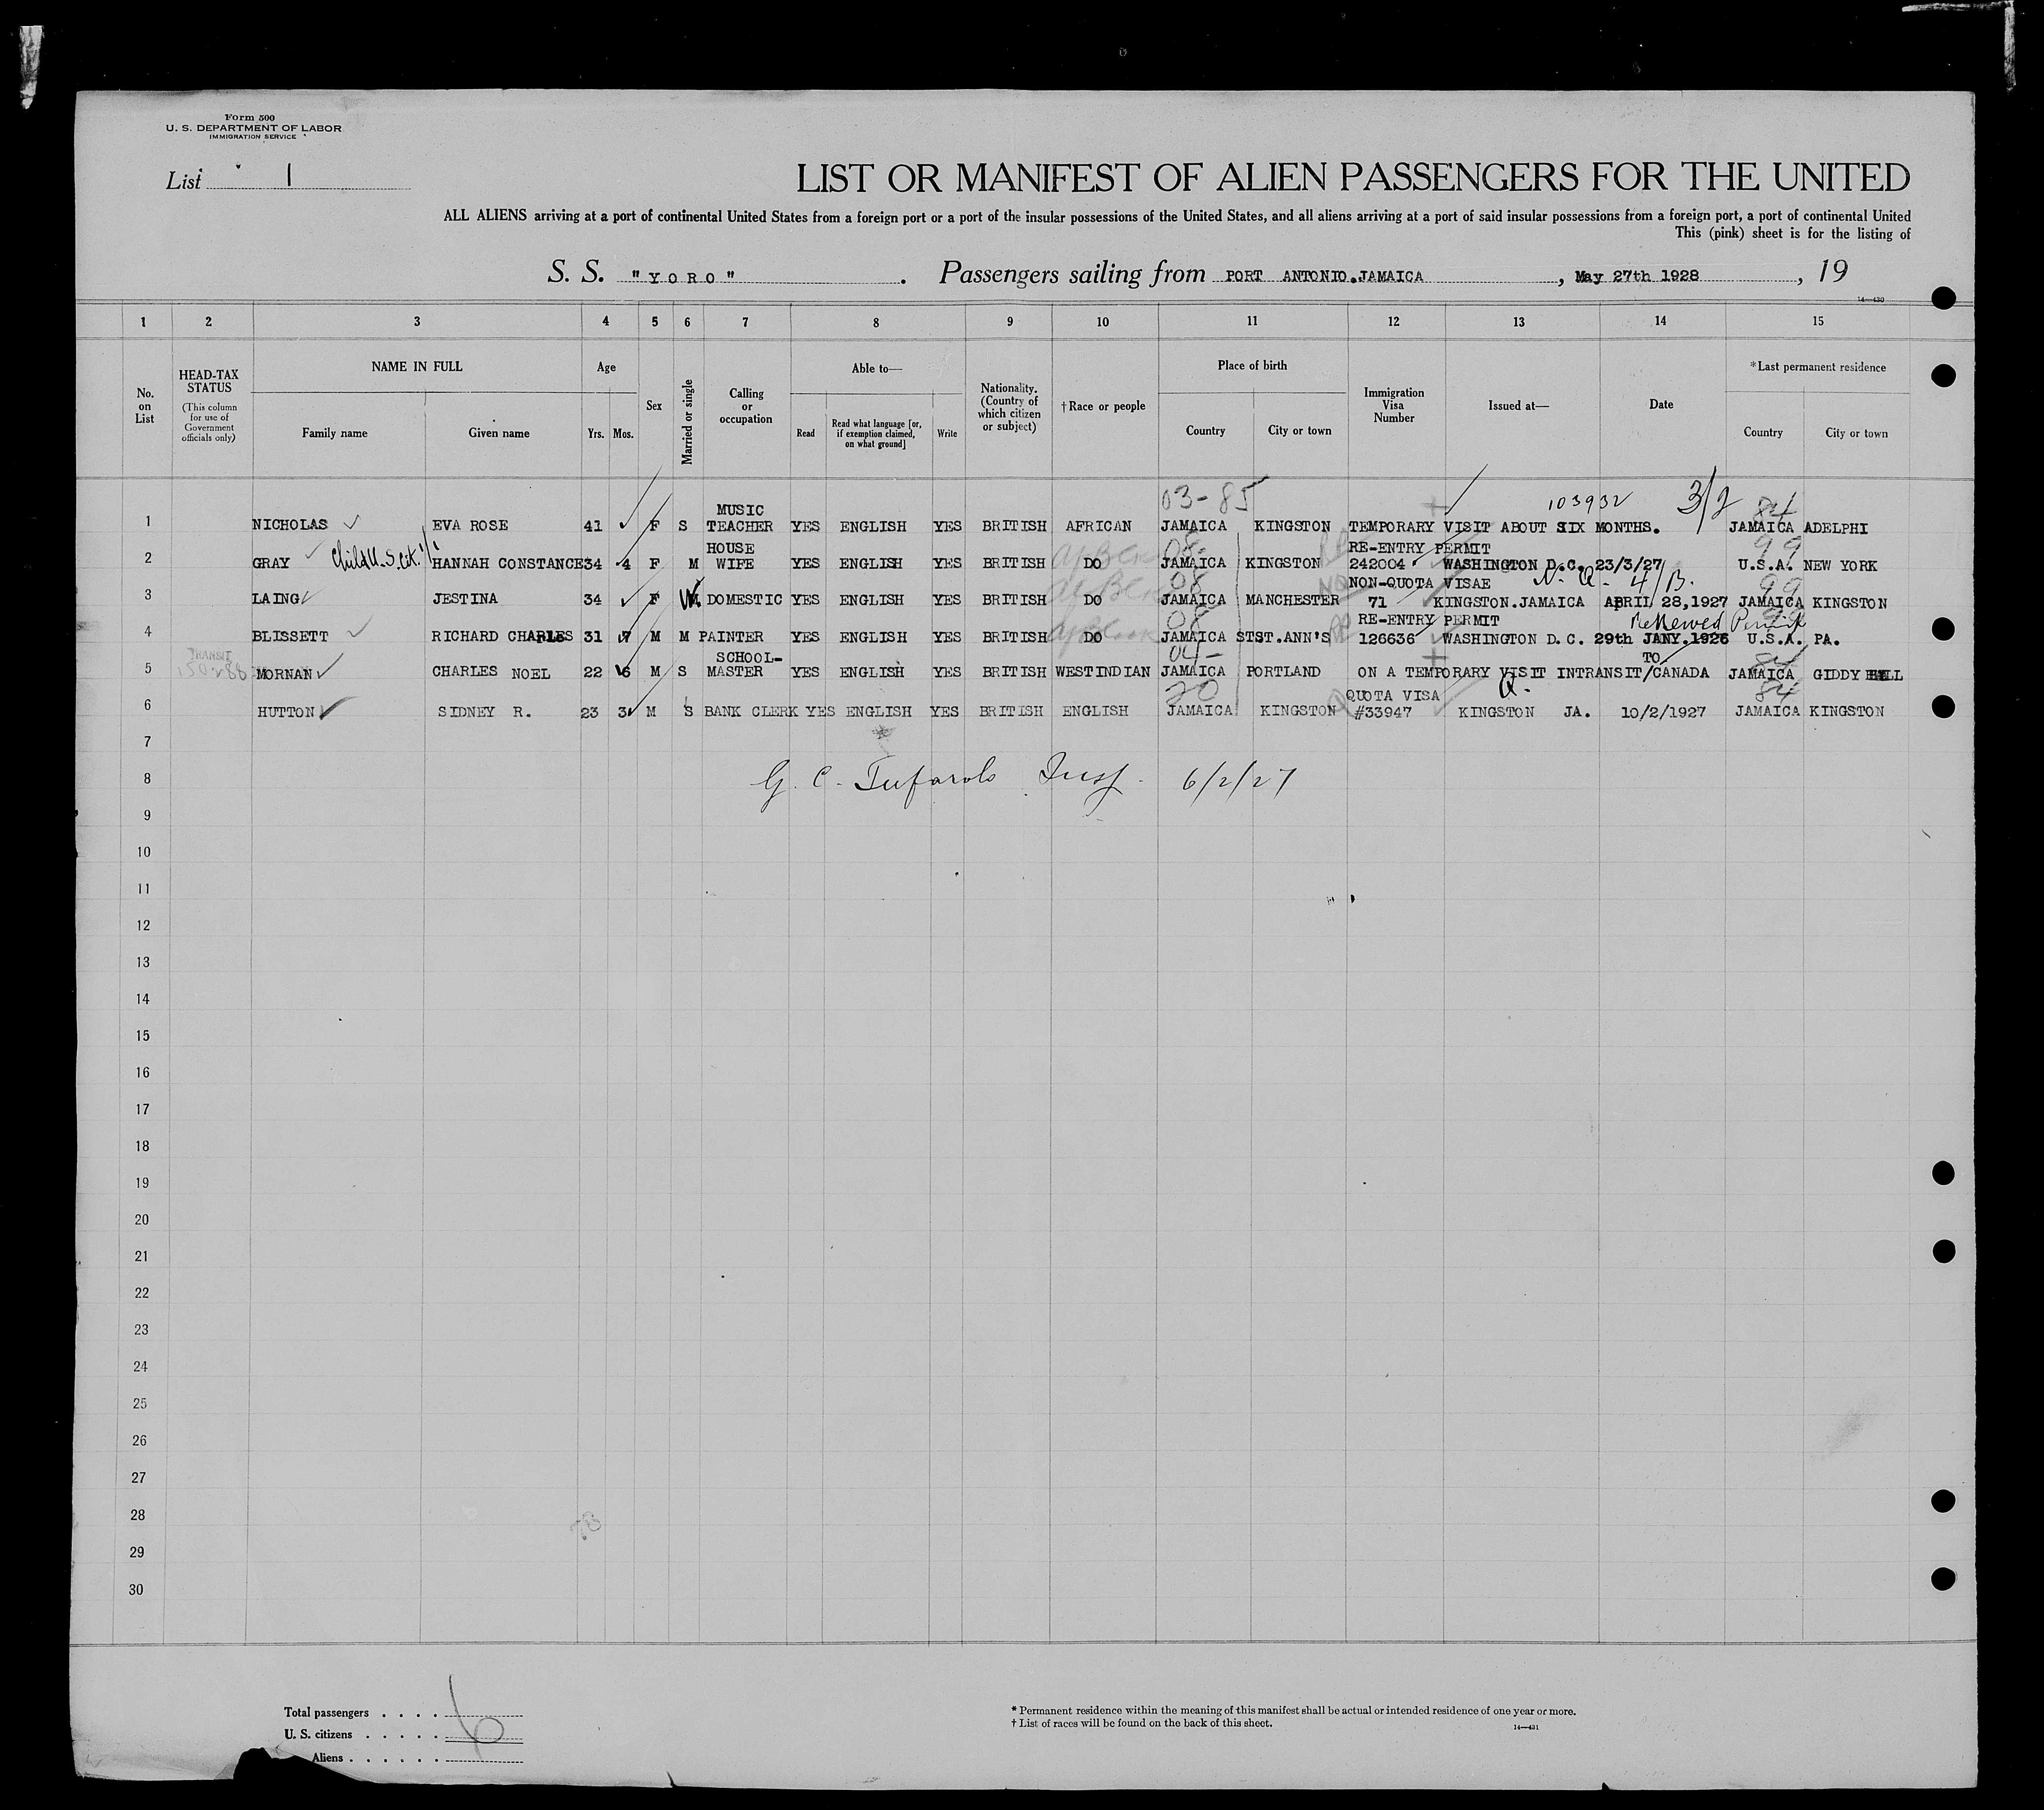 Form 500
U. S. DEPARTMENT OF LABOR
IMMIGRATION SERVICE
List 1
LIST OR MANIFEST OF ALIEN PASSENGERS FOR THE UNITED
ALL ALIENS arriving at a port of continental United States from a foreign port or a port of the insular possessions of the United States, and all aliens arriving at a port of said insular possessions from a foreign port, a port of continental United
This (pink) sheet is for the listing of
S. S. "YORO". Passengers sailing from PORT ANTONIO.JAMAICA, May 27th 1928, 19
14—430
1 2 3 4 5 6 7 8 9 10 11 12 13 14 15
No. on List
HEAD-TAX STATUS (This column for use of Government officials only)
NAME IN FULL
Family name Given name
Age
Yrs. Mos.
Sex
Married or single
Calling or occupation
Able to—
Read
Read what language [or, if exemption claimed, on what ground]
Write
Nationality. (Country of which citizen or subject)
†Race or people
Place of birth
Country City or town
Immigration Visa Number
Issued at—
Date
*Last permanent residence
Country City or town
03-85 103932 3/2 84
1 NICHOLAS EVA ROSE 41 F S MUSIC TEACHER YES ENGLISH YES BRITISH AFRICAN JAMAICA KINGSTON TEMPORARY VISIT ABOUT SIX MONTHS. JAMAICA ADELPHI
08- 99
2 GRAY Child U.S. Cit. HANNAH CONSTANCE 34 4 F M HOUSE WIFE YES ENGLISH YES BRITISH DO JAMAICA KINGSTON RE-ENTRY PERMIT 242004 WASHINGTON D.C. 23/3/27 U.S.A. NEW YORK
08 N.Q. 4/B. 99
3 LAING JESTINA 34 F DOMESTIC YES ENGLISH YES BRITISH DO JAMAICA MANCHESTER NON-QUOTA VISAE 71 KINGSTON.JAMAICA APRIL 28,1927 JAMAICA KINGSTON
08 Renewed Permit 99
4 BLISSETT RICHARD CHARLES 31 7 M M PAINTER YES ENGLISH YES BRITISH DO JAMAICA STST.ANN'S RE-ENTRY PERMIT 126636 WASHINGTON D.C. 29th JANY.1926 U.S.A. PA.
TRANSIT 04- 84
5 MORNAN CHARLES NOEL 22 6 M S SCHOOL-MASTER YES ENGLISH YES BRITISH WEST INDIAN JAMAICA PORTLAND ON A TEMPORARY VISIT INTRANSIT/TO CANADA JAMAICA GIDDY HILL
20 Q. 84
6 HUTTON SIDNEY R. 23 3 M S BANK CLERK YES ENGLISH YES BRITISH ENGLISH JAMAICA KINGSTON QUOTA VISA #33947 KINGSTON JA. 10/2/1927 JAMAICA KINGSTON
7
8 G. C. Tufarolo Insp. 6/2/27
9
10
11
12
13
14
15
16
17
18
19
20
21
22
23
24
25
26
27
28
29
30
Total passengers . . . . 6
U. S. citizens . . . . .
Aliens . . . . . .
* Permanent residence within the meaning of this manifest shall be actual or intended residence of one year or more.
† List of races will be found on the back of this sheet. 14—431